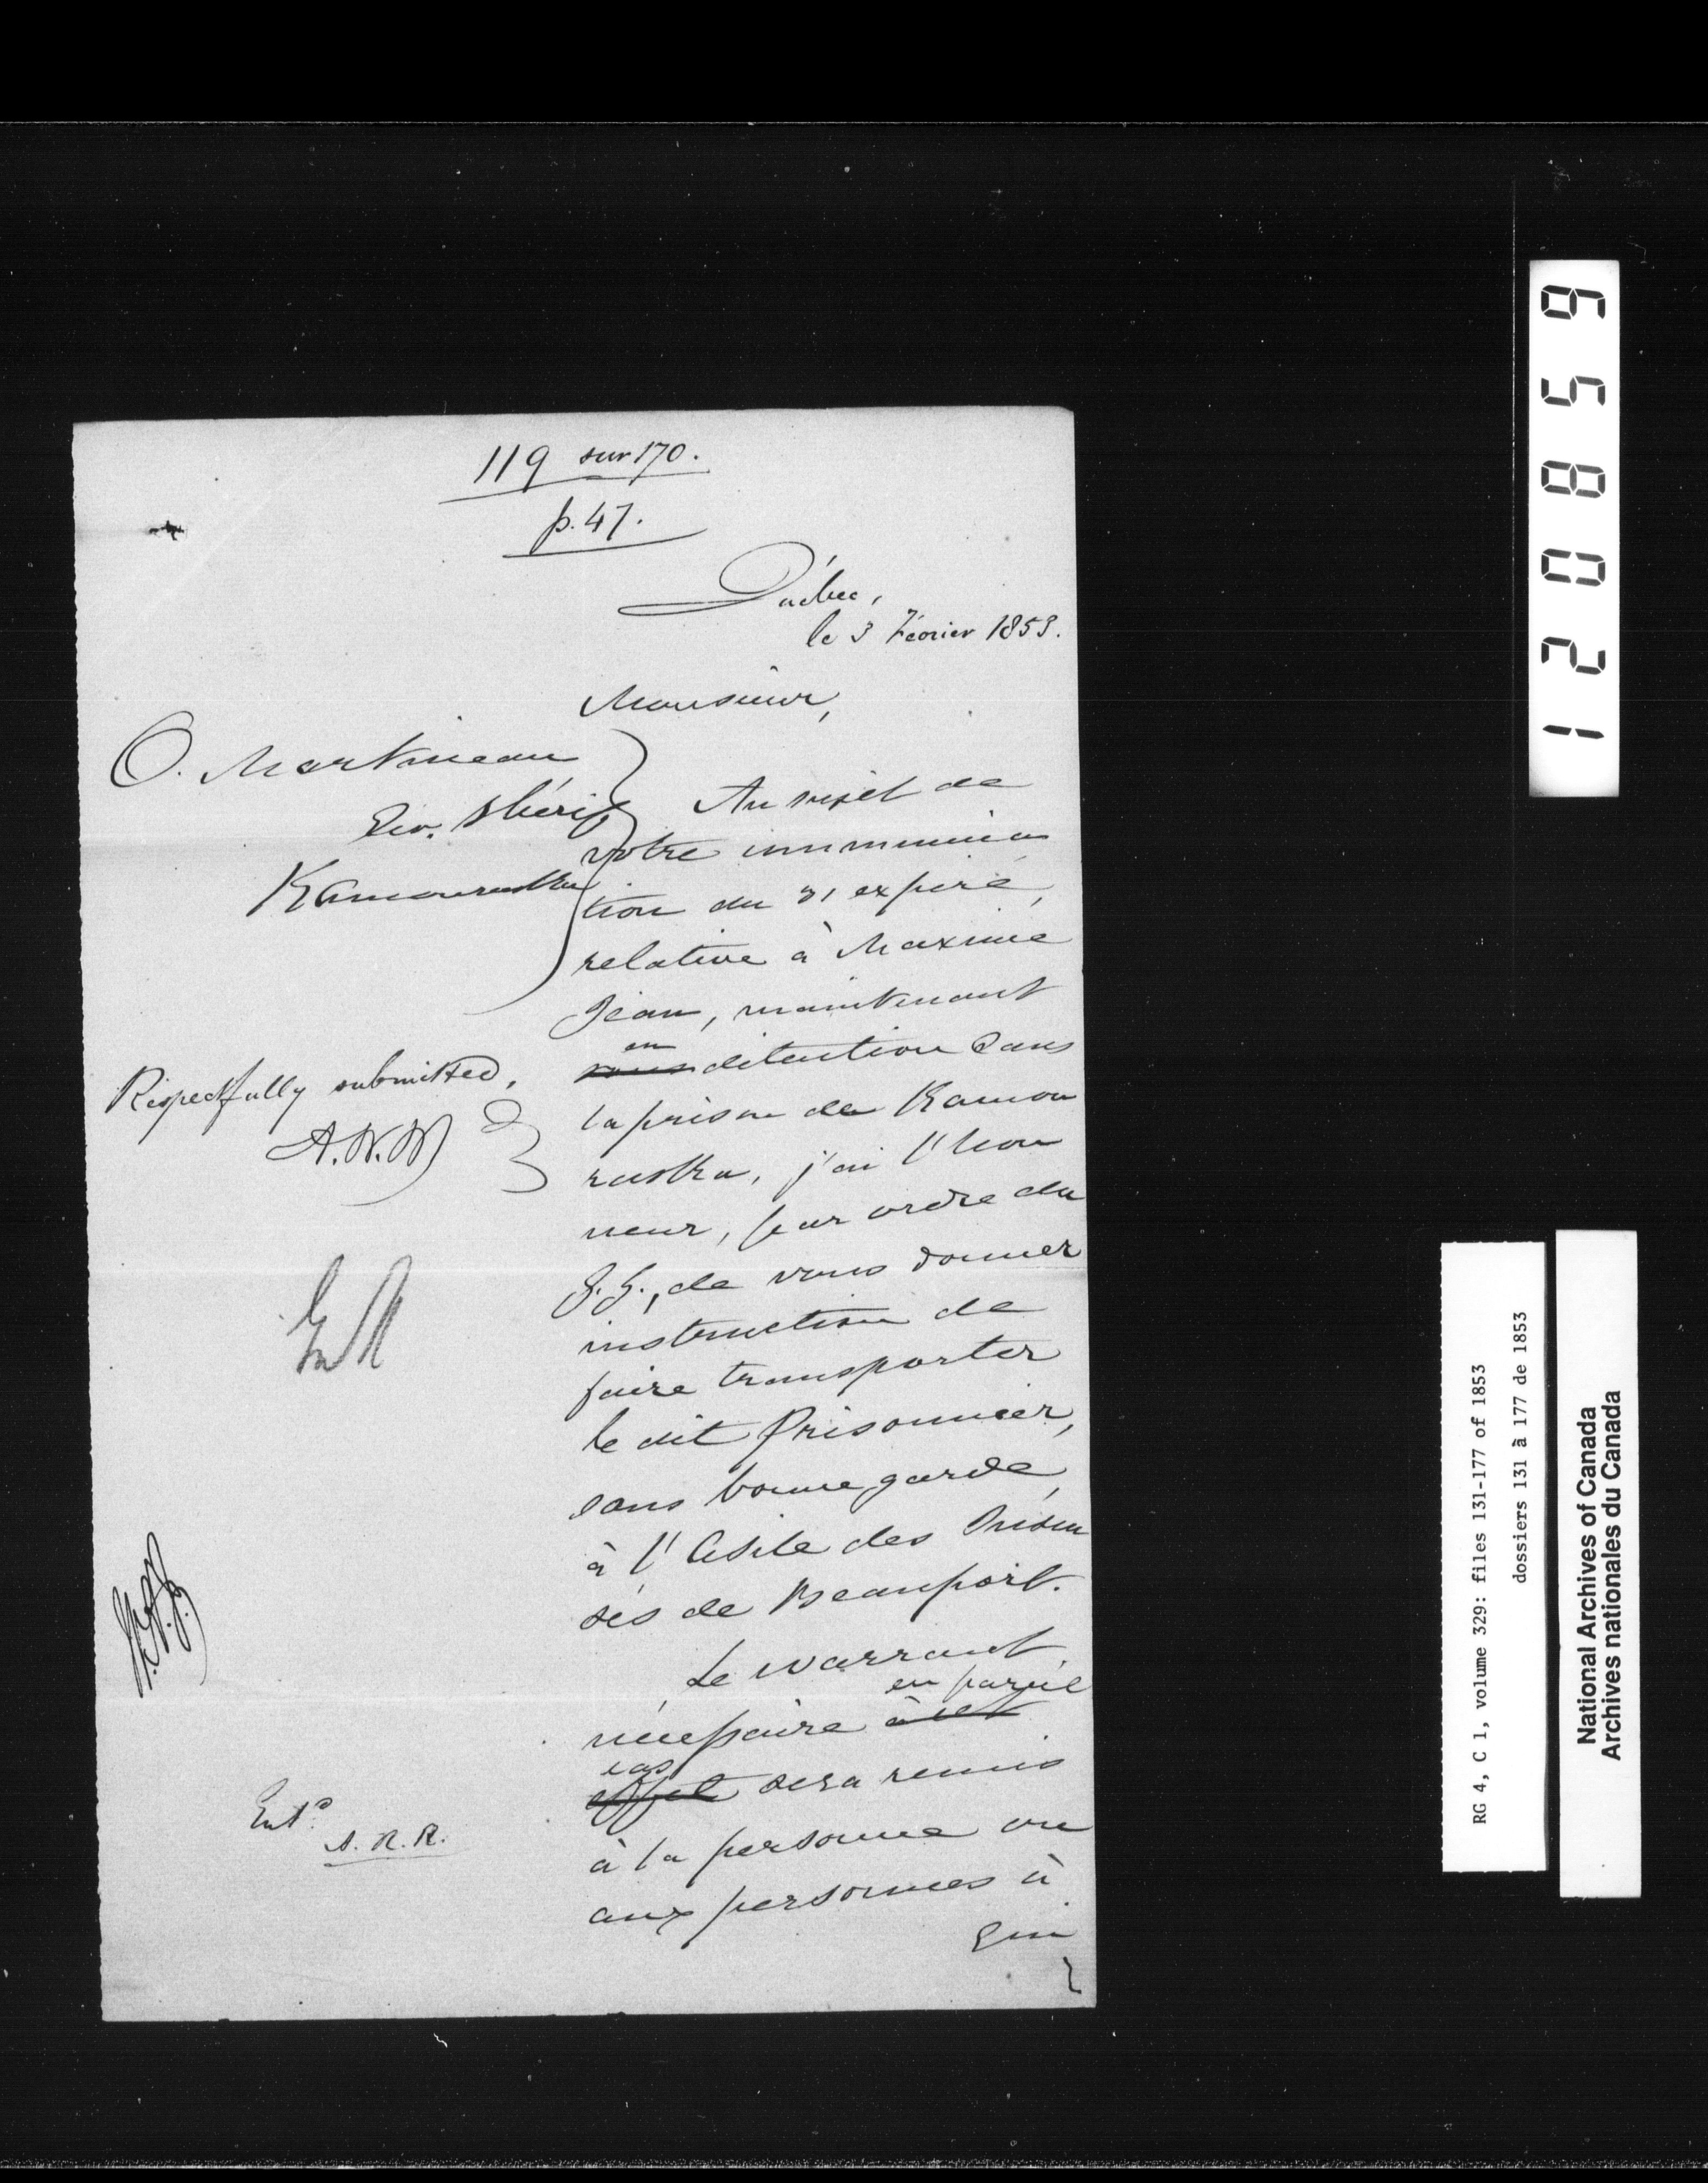 119 sur 170.
p. 47.
Québec,
le 3 Février 1853.
Monsieur,
O. Martineau
Shérif
Kamouraska
Au sujet de
votre communica
tion du 31 expiré,
relative à Maxime
Jean, maintenant
en
sous detention dans
la prison de Kamou
raska, j'ai l'hon
neur, par ordre du
G. G., de vous donner
instruction de
faire transporter
le dit Prisonnier,
sous bonne garde,
à l'Asile des
sés de Beauport.
Le warrant
en pareil
nécessaire à cet
cas
effet sera remis
à la personne ou
aux personnes à
qui
Respectfully submitted,
Entd.
A. R. R.
120859
RG 4, C 1, volume 329: files 131-177 of 1853
dossiers 131 à 177 de 1853
National Archives of Canada
Archives nationales du Canada